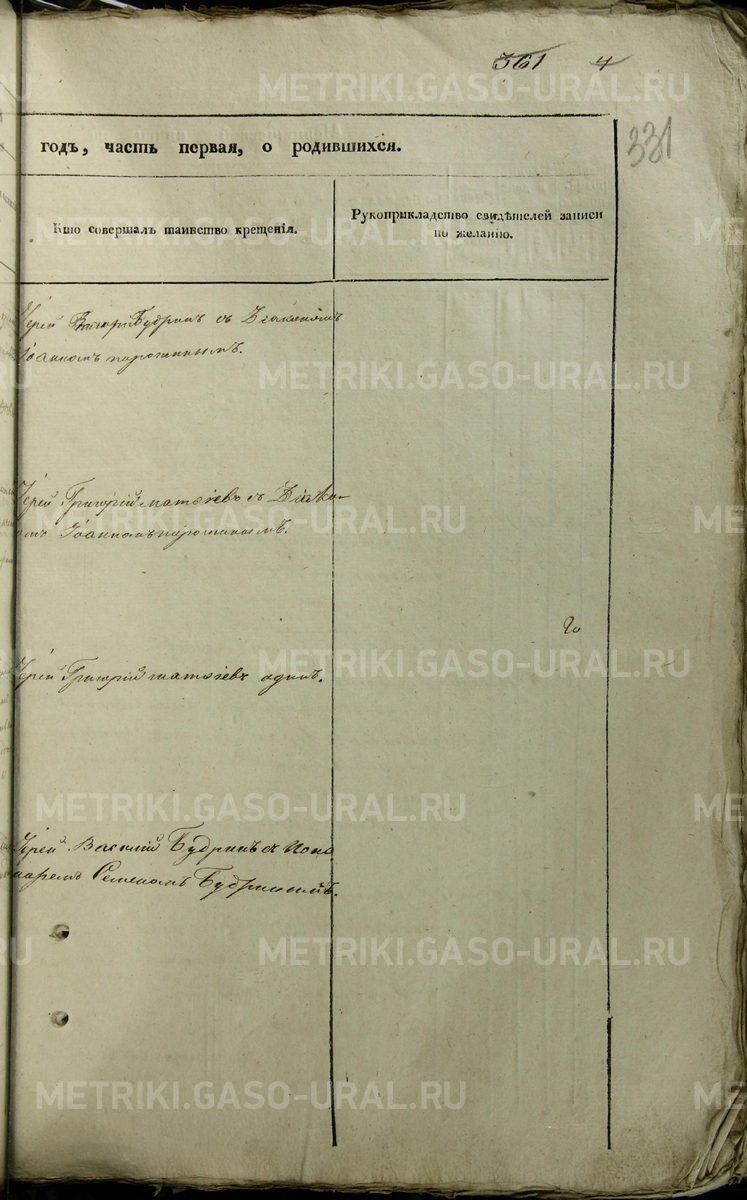 361 4
331
годъ, часть первая, о родившихся.
Кто совершалъ таинство крещенія.
Рукоприкладство свидѣтелей записи
по желанію.
Іерей Будринъ съ Діакономъ
Іоанномъ
Іерей Григорій Матѳіевъ съ Діако-
омъ Іоанномъ
Іерей Григорій Матѳіевъ одинъ.
Іерей Василій Будринъ съ Поно
маремъ Семеномъ Будринымъ.
METRIKI.GASO-URAL.RU
METRIKI.GASO-URAL.RU
METRIKI.GASO-URAL.RU
METRIKI.GASO-URAL.RU
METRIKI.GASO-URAL.RU
METRIKI.GASO-URAL.RU
METRIKI.GASO-URAL.RU
METRIKI.GASO-URAL.RU